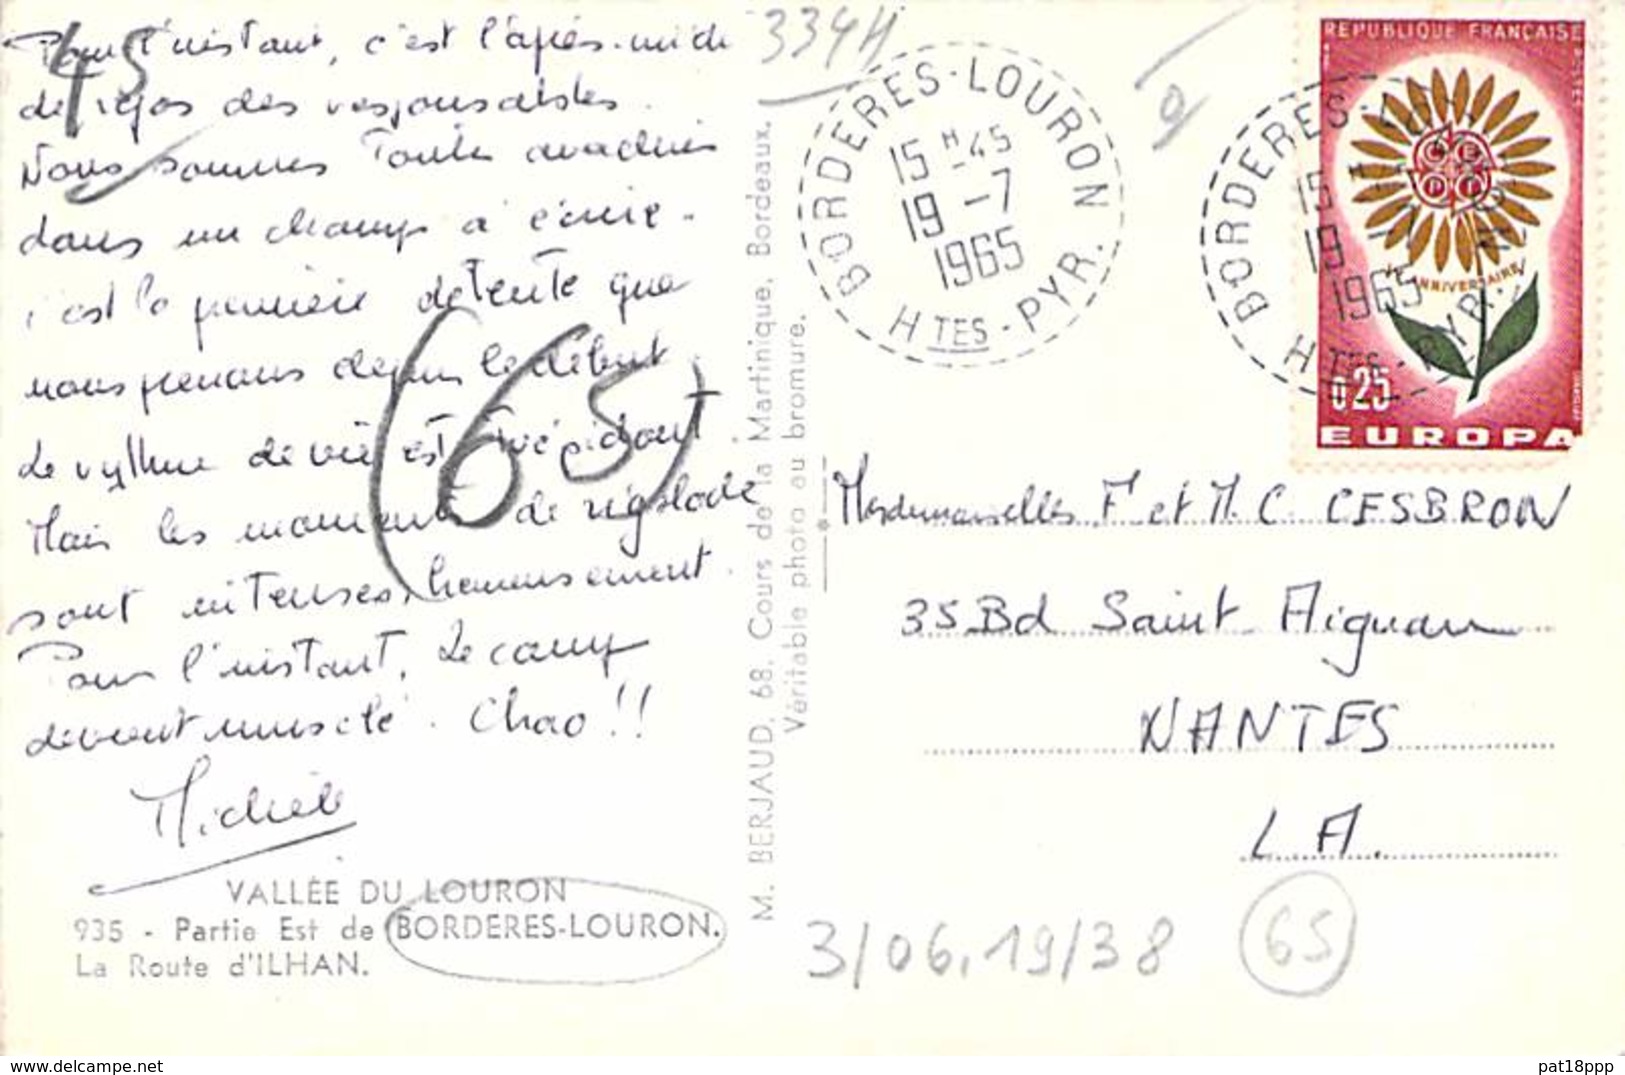 Pour l'instant, c'est l'après-midi
de repos des responsables.
Nous sommes toutes avachies
dans un champ à l'ombre.
c'est la première détente que
nous prenons depuis le début
Le rythme de vie est trépidant
Mais les moments de rigolade
sont intenses, heureusement.
Pour l'instant, le camp
devient musclé. Chao!!
Michèle
45
(65)
VALLÉE DU LOURON
935 - Partie Est de BORDERES-LOURON.
La Route d'ILHAN.
M. BERJAUD, 68, Cours de la Martinique, Bordeaux.
Véritable photo au bromure.
334H
BORDERES-LOURON
15 H-45
19-7
1965
HTES-PYR.
BORDERES-LOURON
15 H
19
1965
HTES-PYR.
REPUBLIQUE FRANÇAISE
POSTES
CEPT
ANNIVERSAIRE
0,25
EUROPA
Mesdemoiselles F et M.C. CESBRON
35 Bd Saint Aignan
NANTES
L A.
3/06,19/38
65
pat18ppp